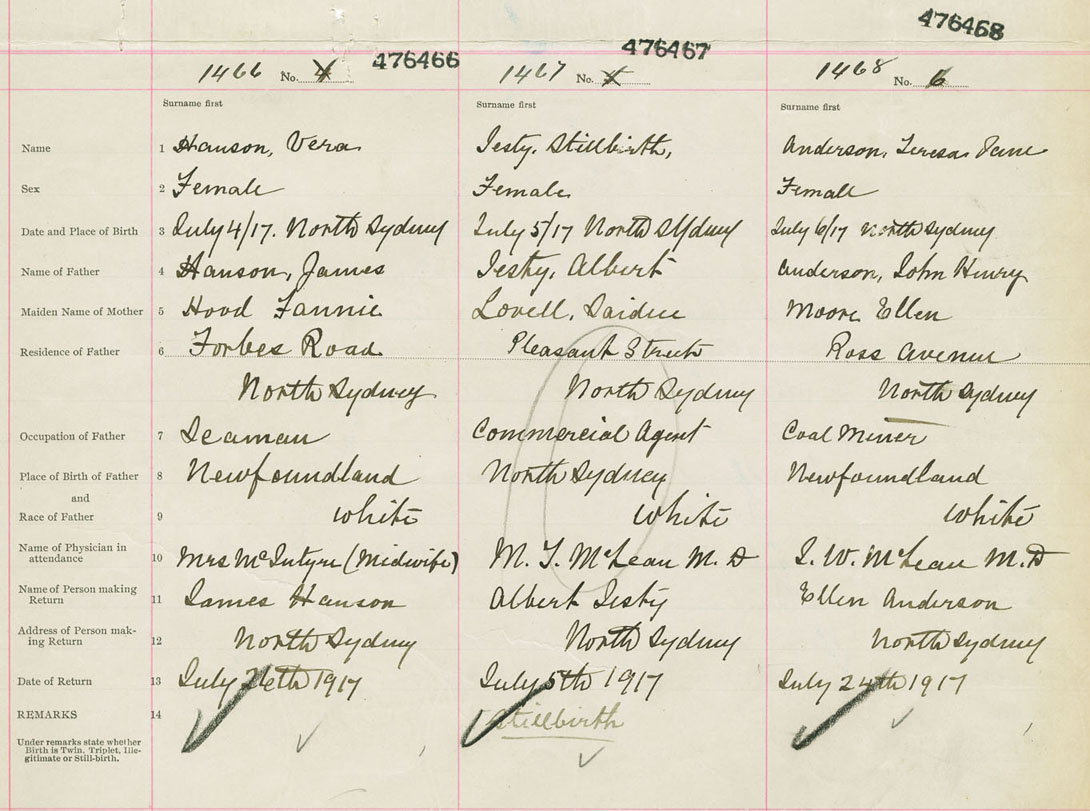 476466 476467 476468
1466 No. 4 1467 No. 1468 No. 6
Surname first Surname first Surname first
Name 1 Hanson, Vera Jesty, Stillbirth, Anderson, Teresa
Sex 2 Female Female Female
Date and Place of Birth 3 July 4/17. North Sydney July 5/17 North Sydney July 6/17 North Sydney
Name of Father 4 Hanson, James Jesty, Albert Anderson, John Henry
Maiden Name of Mother 5 Hood Fannie Lovell, Moore Ellen
Residence of Father 6 Forbes Road Pleasant Street Ross Avenue
North Sydney North Sydney North Sydney
Occupation of Father 7 Seaman Commercial Agent Coal Miner
Place of Birth of Father 8 Newfoundland North Sydney Newfoundland
and
Race of Father 9 White White White
Name of Physician in
attendance 10 Mrs McIntyre (Midwife) M. T. McLean M. D J. W. McLean M. D
Name of Person making
Return 11 James Hanson Albert Jesty Ellen Anderson
Address of Person mak-
ing Return 12 North Sydney North Sydney North Sydney
Date of Return 13 July 26th 1917 July 5th 1917 July 24th 1917
REMARKS 14 Stillbirth
Under remarks state whether
Birth is Twin, Triplet, Ille-
gitimate or Still-birth.